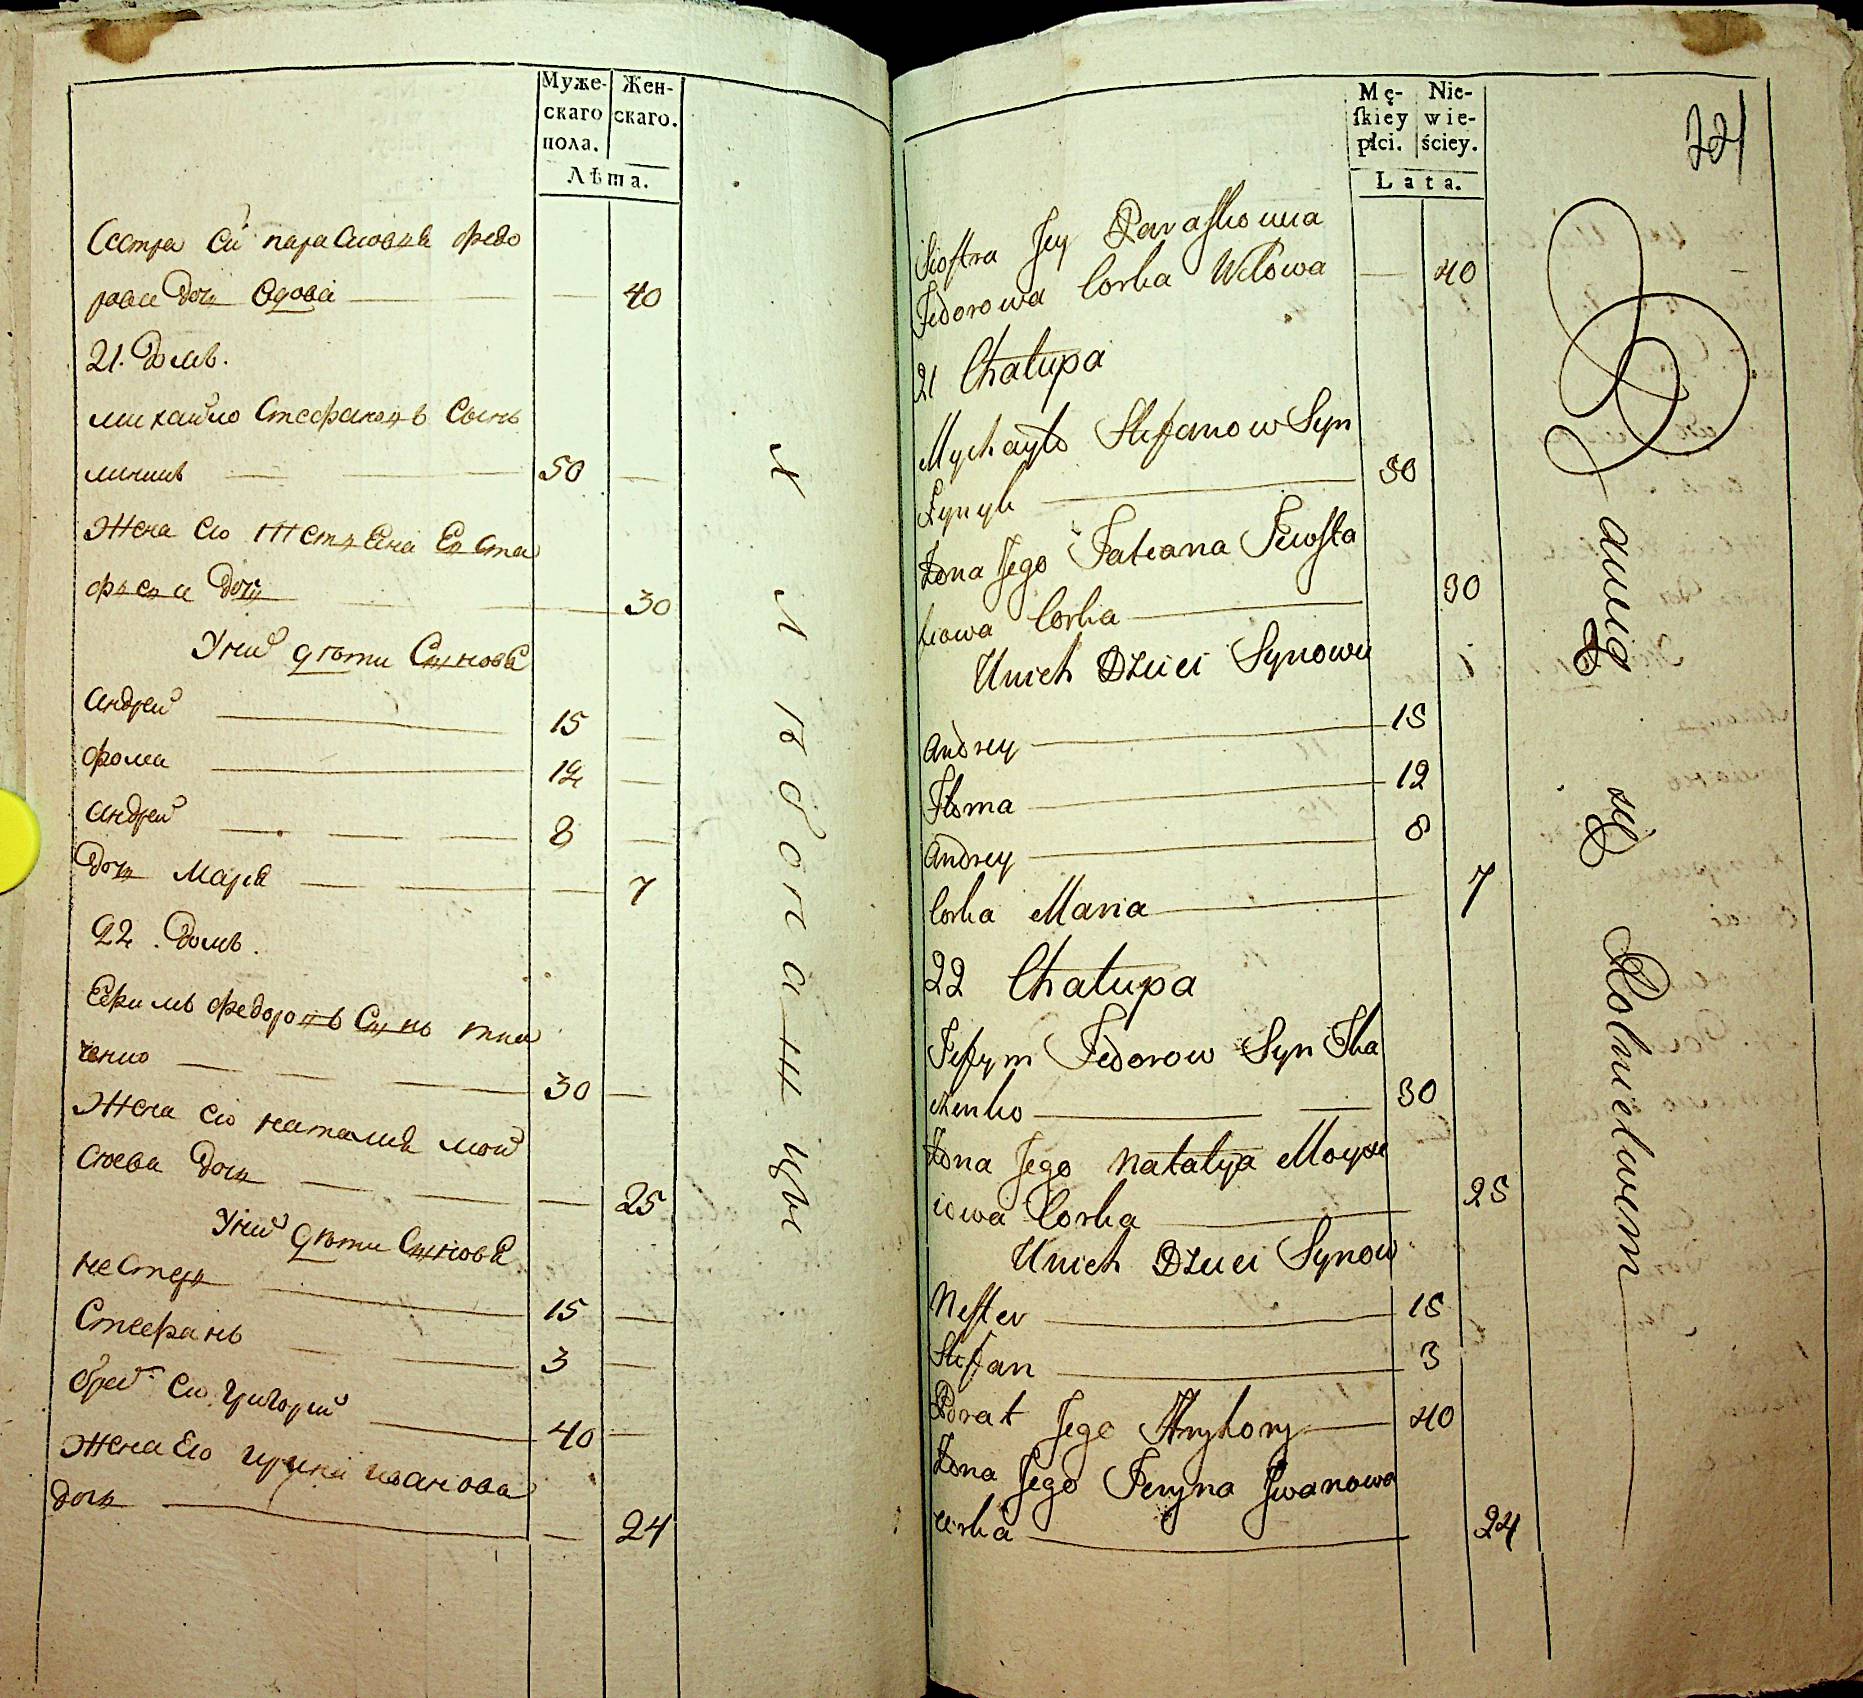 Муже-
скаго
пола.
Жен-
скаго.
Лѣта.
Сестра Ей парасковія федо
рова Дочь вдова — 40
21. Домъ.
михайло Стефановъ Сынъ
линикъ — 50 —
Жена Его Тетяна Еѵста
фѣева Дочь — 30
У них дѣти Сыновѣ
андрей — 15 —
фома — 12 —
андрей — 8 —
Дочь Марія — 7
22. Домъ.
Ефимъ федоровъ Сынъ тка
ченко — 30 —
Жена Его наталия мой
сеева Дочь — 25
У них дѣти Сыновѣ
нестеръ — 15 —
Стефанъ — 3 —
брат Его Григорий — 40 —
Жена Его ирина иванова
Дочь — 24
Х Лѣбопашцы
Mę-
ſkiey
płci.
Nie-
wie-
ściey.
Lata.
221
Siostra Jey Paraskowia
Fedorowa Corka Wdowa — 40
21 Chałupa
Mychayło Stefanow Syn
Łynyk — 50
Żona Jego Tatiana Jewsta
fiowa Corka — 30
Unich Dzieci Synowie
Andrey — 15
Thoma — 12
Andrey — 8
Corka Maria — 7
22 Chałupa
Jefym Fedorow Syn Tka
czenko — 30
Żona Jego Natalya Moyse
iowa Corka — 25
Unich Dzieci Synow
Nester — 15
Stefan — 3
Brat Jego Hryhory — 40
Żona Jego Jeryna Jwanowa
Corka — 24
Bawią się Rolnictwem